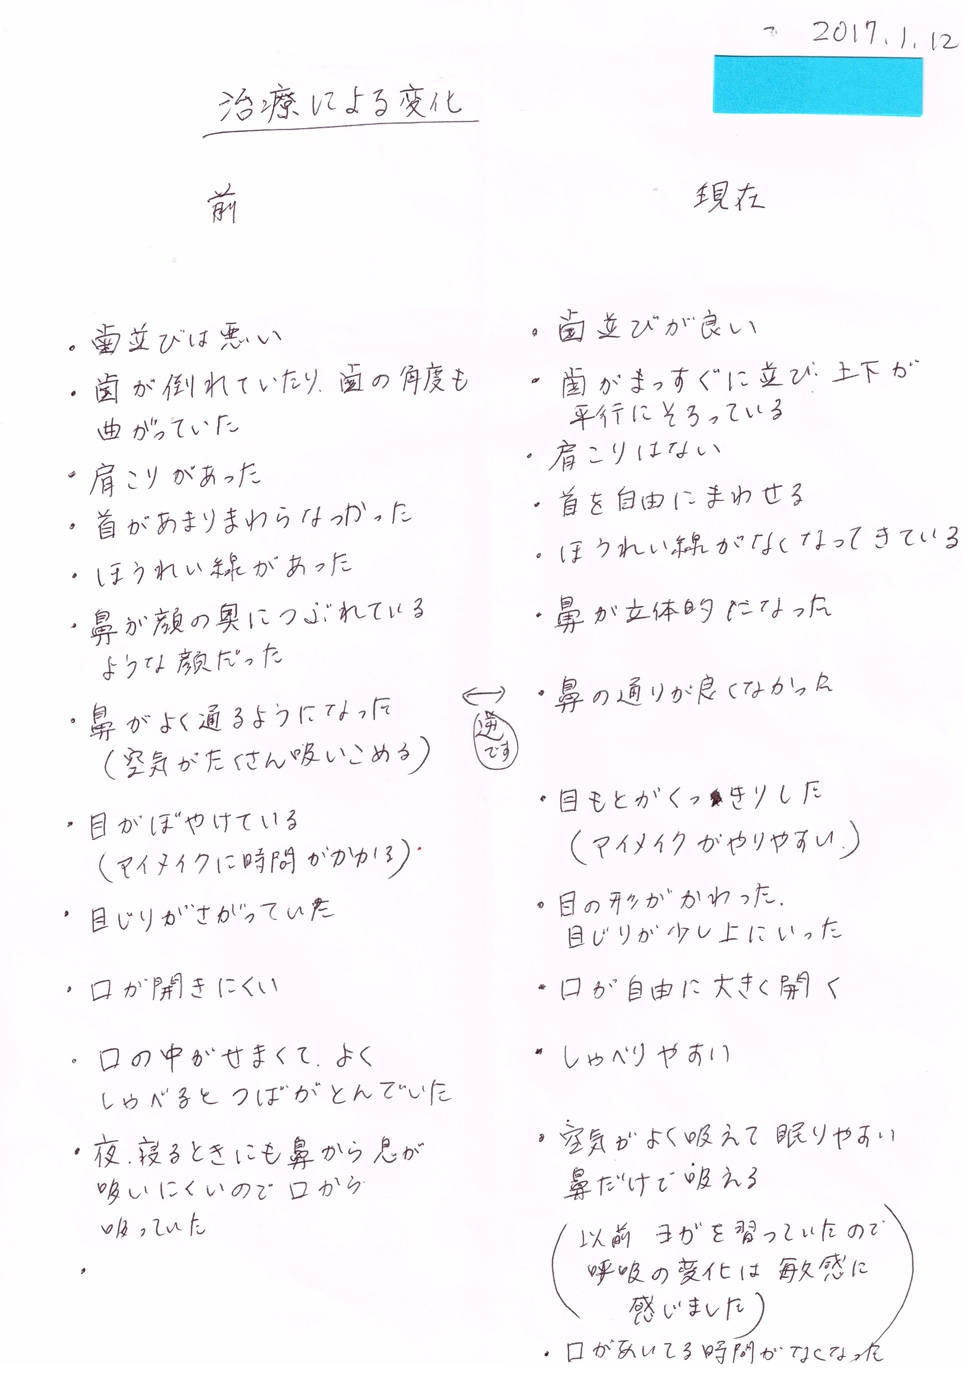 2017.1.12
治療による変化
前
現在
・歯並びは悪い
・歯が倒れていたり、歯の角度も
曲がっていた
・肩こりがあった
・首があまりまわらなかった
・ほうれい線があった
・鼻が顔の奥につぶれている
ような顔だった
・鼻がよく通るようになった
(空気がたくさん吸いこめる)
・目がぼやけている
(アイメイクに時間がかかる)
・目じりがさがっていた
・口が開きにくい
・口の中がせまくて、よく
しゃべるとつばがとんでいた
・夜、寝るときにも鼻から息が
吸いにくいので口から
吸っていた
・
↔
逆
です
・歯並びが良い
・歯がまっすぐに並び、上下が
平行にそろっている
・肩こりはない
・首を自由にまわせる
・ほうれい線がなくなってきている
・鼻が立体的になった
・鼻の通りが良くなかった
・目もとがくっきりした
(アイメイクがやりやすい。)
・目の形がかわった。
目じりが少し上にいった
・口が自由に大きく開く
・しゃべりやすい
・空気がよく吸えて眠りやすい
鼻だけで吸える
(以前ヨガを習っていたので
呼吸の変化は敏感に
感じました)
・口があいてる時間がなくなった